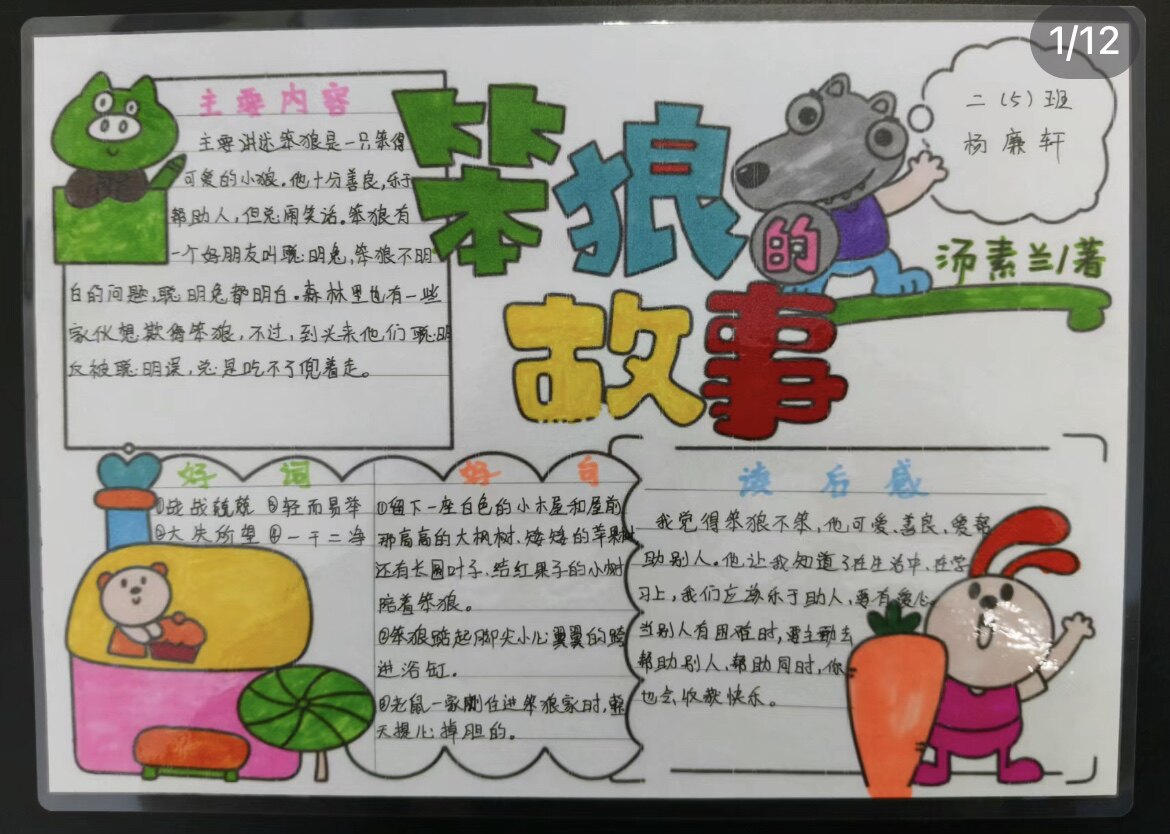 1/12
主要内容
主要讲述笨狼是一只笨得
可爱的小狼。他十分善良,乐于
帮助人,但总闹笑话。笨狼有
一个好朋友叫聪明兔,笨狼不明
白的问题,聪明兔都明白。森林里也有一些
家伙想欺侮笨狼,不过,到头来他们聪明
反被聪明误,总是吃不了兜着走。
笨狼的
故事
二(5)班
杨廉轩
汤素兰/著
好词
①战战兢兢 ②轻而易举
③大失所望 ④一干二净
好句
①留下一座白色的小木屋和屋前
那高高的大枫树、矮矮的苹果树
还有长圆叶子、结红果子的小树
陪着笨狼。
②笨狼踮起脚尖小心翼翼的跨
进浴缸。
③老鼠一家刚住进笨狼家时,整
天提心掉胆的。
读后感
我觉得笨狼不笨,他可爱、善良、爱帮
助别人。他让我知道了在生活中、在学
习上,我们应该乐于助人,要有爱心。
当别人有困难时,要主动去
帮助别人、帮助同时,你
也会收获快乐。